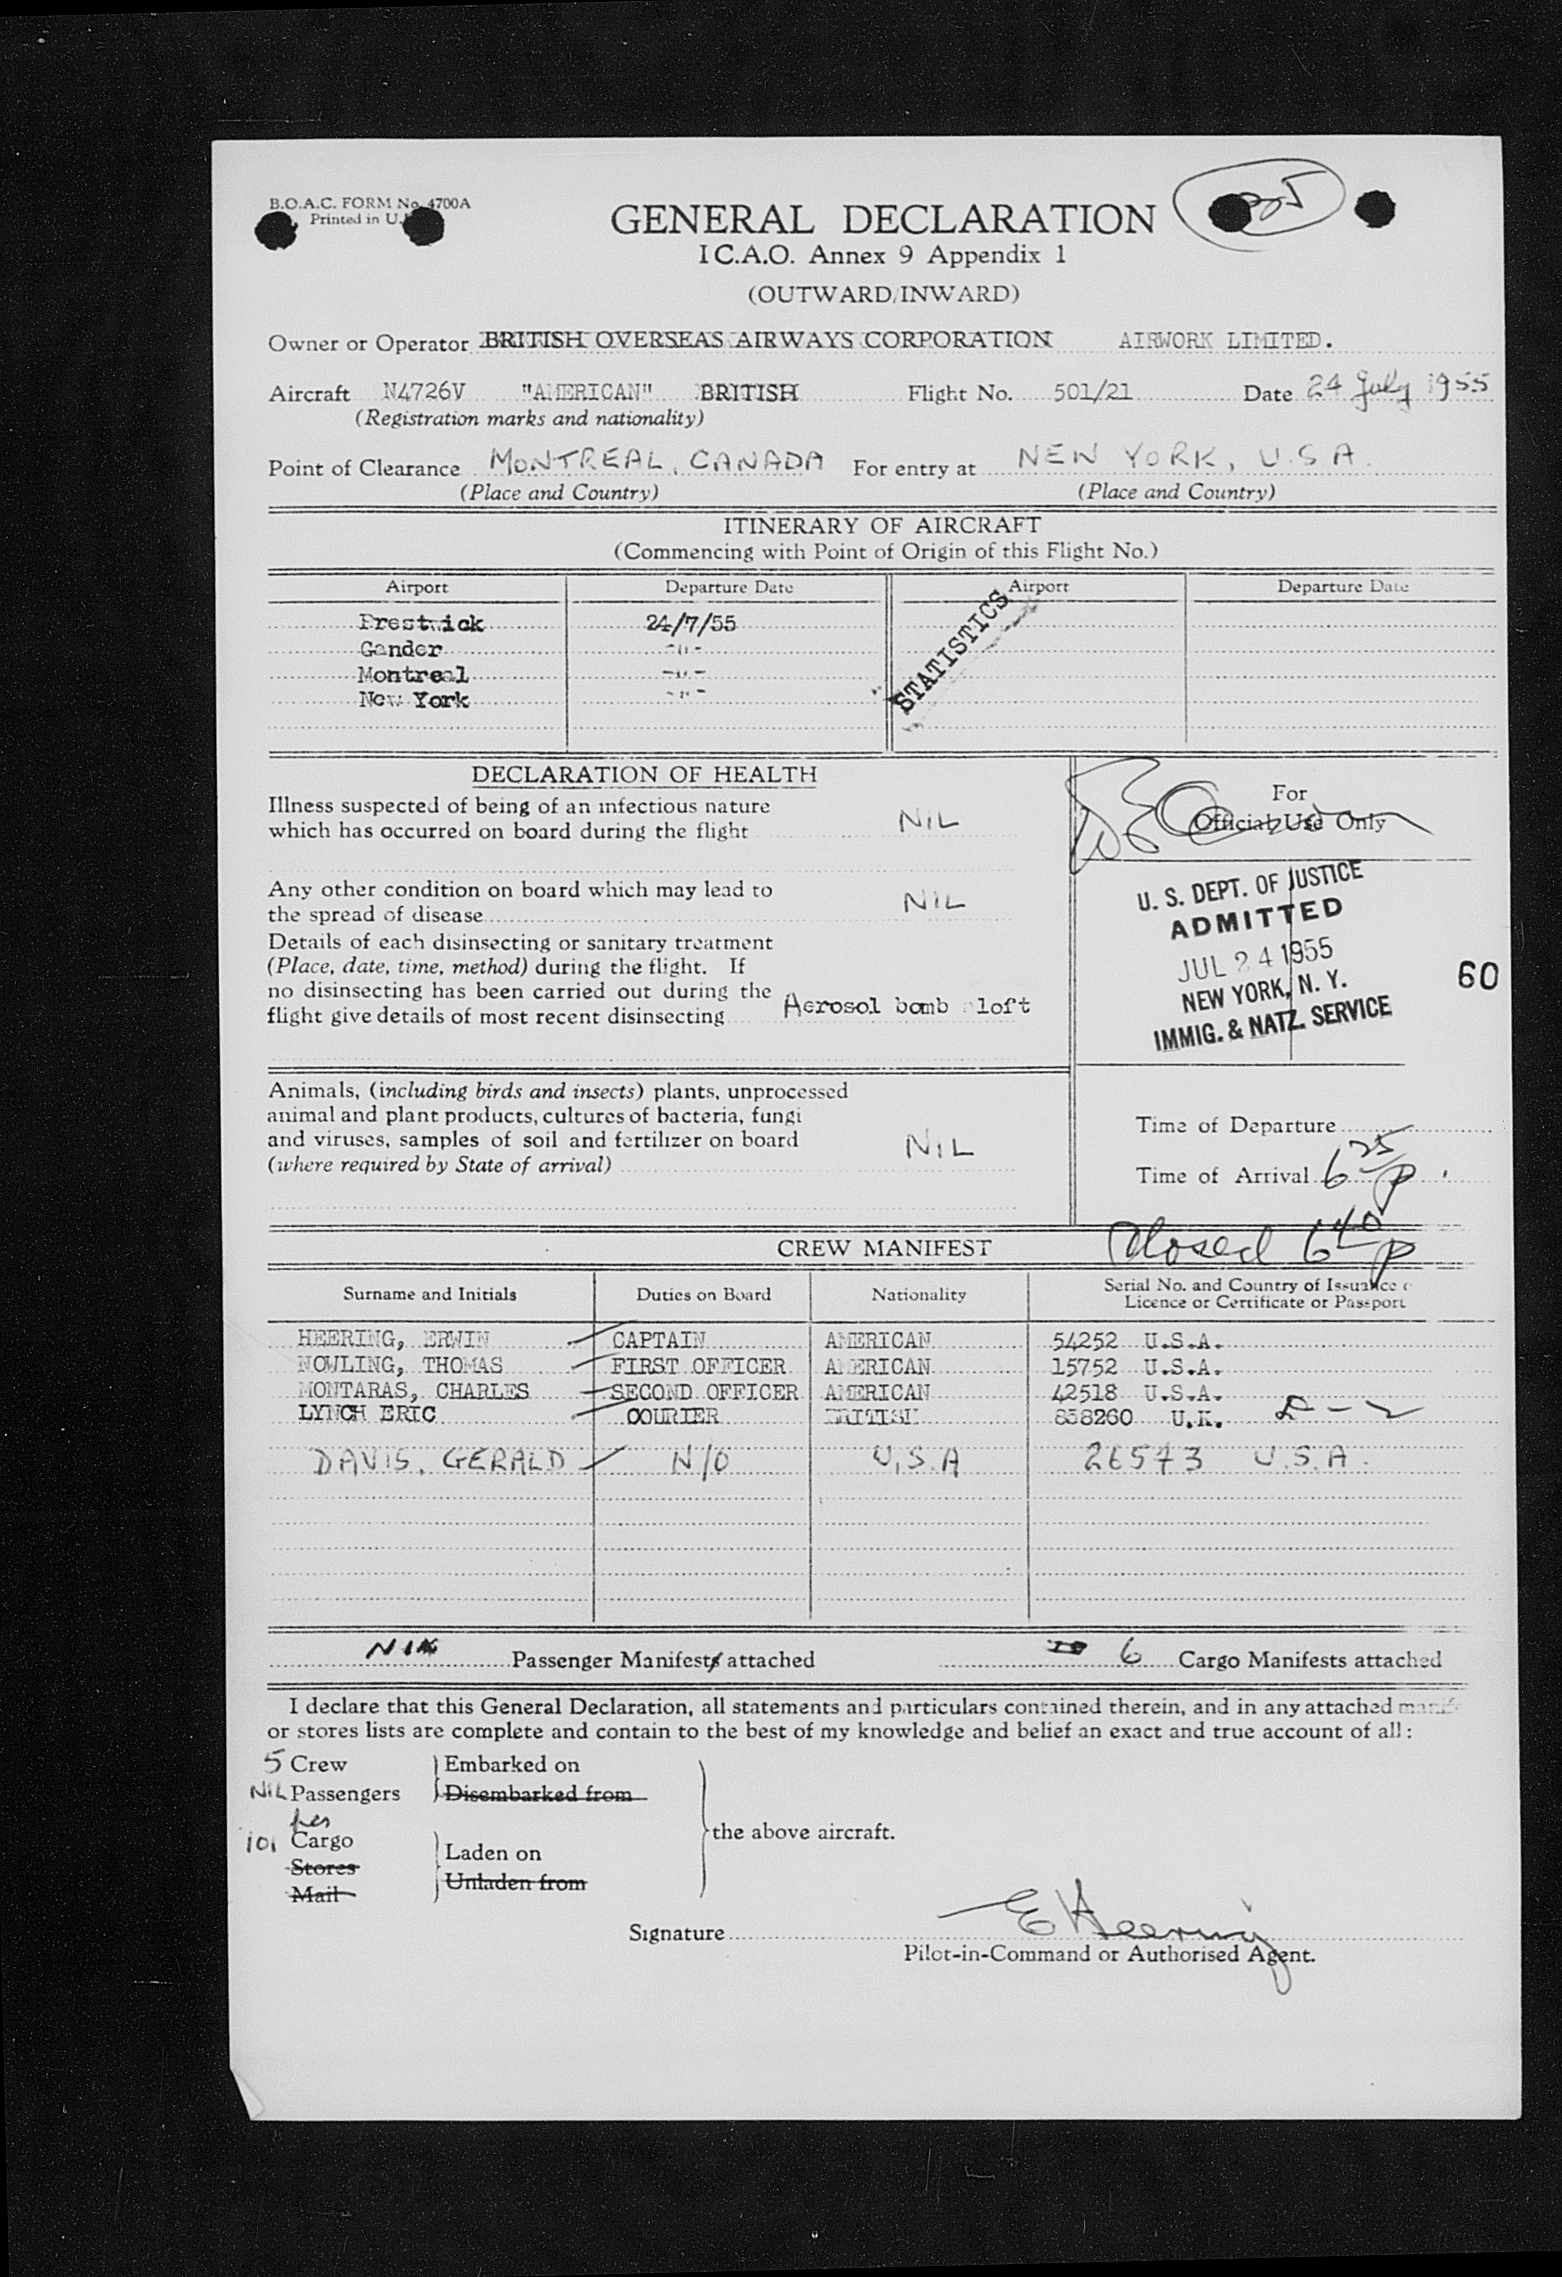 B.O.A.C. FORM No. 4700A
Printed in U.
GENERAL DECLARATION
I C.A.O. Annex 9 Appendix 1
(OUTWARD/INWARD)
Owner or Operator BRITISH OVERSEAS AIRWAYS CORPORATION AIRWORK LIMITED.
Aircraft N4726V "AMERICAN" BRITISH Flight No. 501/21 Date 24 July 1955
(Registration marks and nationality)
Point of Clearance MONTREAL, CANADA For entry at NEW YORK, U.S.A.
(Place and Country) (Place and Country)
ITINERARY OF AIRCRAFT
(Commencing with Point of Origin of this Flight No.)
Airport Departure Date Airport Departure Date
Prestwick 24/7/55
Gander -"-
Montreal -"-
New York -"-
STATISTICS
DECLARATION OF HEALTH
Illness suspected of being of an infectious nature
which has occurred on board during the flight NIL
For
Official Use Only
Any other condition on board which may lead to
the spread of disease NIL
Details of each disinsecting or sanitary treatment
(Place, date, time, method) during the flight. If
no disinsecting has been carried out during the
flight give details of most recent disinsecting Aerosol bomb aloft
U. S. DEPT. OF JUSTICE
ADMITTED
JUL 24 1955
NEW YORK, N. Y.
IMMIG. & NATZ. SERVICE
60
Animals, (including birds and insects) plants, unprocessed
animal and plant products, cultures of bacteria, fungi
and viruses, samples of soil and fertilizer on board
(where required by State of arrival) NIL
Time of Departure
Time of Arrival 6 25 p.
Closed 6 40 p
CREW MANIFEST
Surname and Initials Duties on Board Nationality Serial No. and Country of Issuance o
Licence or Certificate or Passport
HEERING, ERWIN CAPTAIN AMERICAN 54252 U.S.A.
NOWLING, THOMAS FIRST OFFICER AMERICAN 15752 U.S.A.
MONTARAS, CHARLES SECOND OFFICER AMERICAN 42518 U.S.A.
LYNCH ERIC COURIER BRITISH 858260 U.K.
DAVIS, GERALD N/O U.S.A 26573 U.S.A.
NIL Passenger Manifests attached 6 Cargo Manifests attached
I declare that this General Declaration, all statements and particulars contained therein, and in any attached manife
or stores lists are complete and contain to the best of my knowledge and belief an exact and true account of all:
5 Crew Embarked on
NIL Passengers Disembarked from
pcs
101 Cargo the above aircraft.
Laden on
Stores
Unladen from
Mail
Signature E Heering
Pilot-in-Command or Authorised Agent.